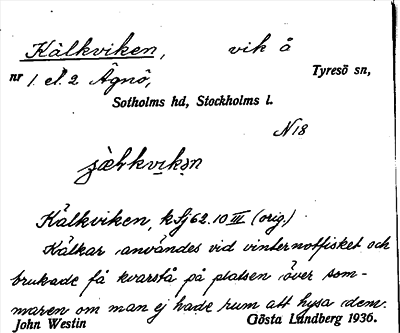 Kälkviken, vik å
nr 1 el. 2 Ägnö, Tyresö sn,
Sotholms hd, Stockholms l.
N18
Kälkviken, kSj62.10 III (orig)
Kälkar användes vid vinternotfisket och
brukade få kvarstå på platsen över som-
maren om man ej hade rum att hysa dem.
John Westin Gösta Lundberg 1936.